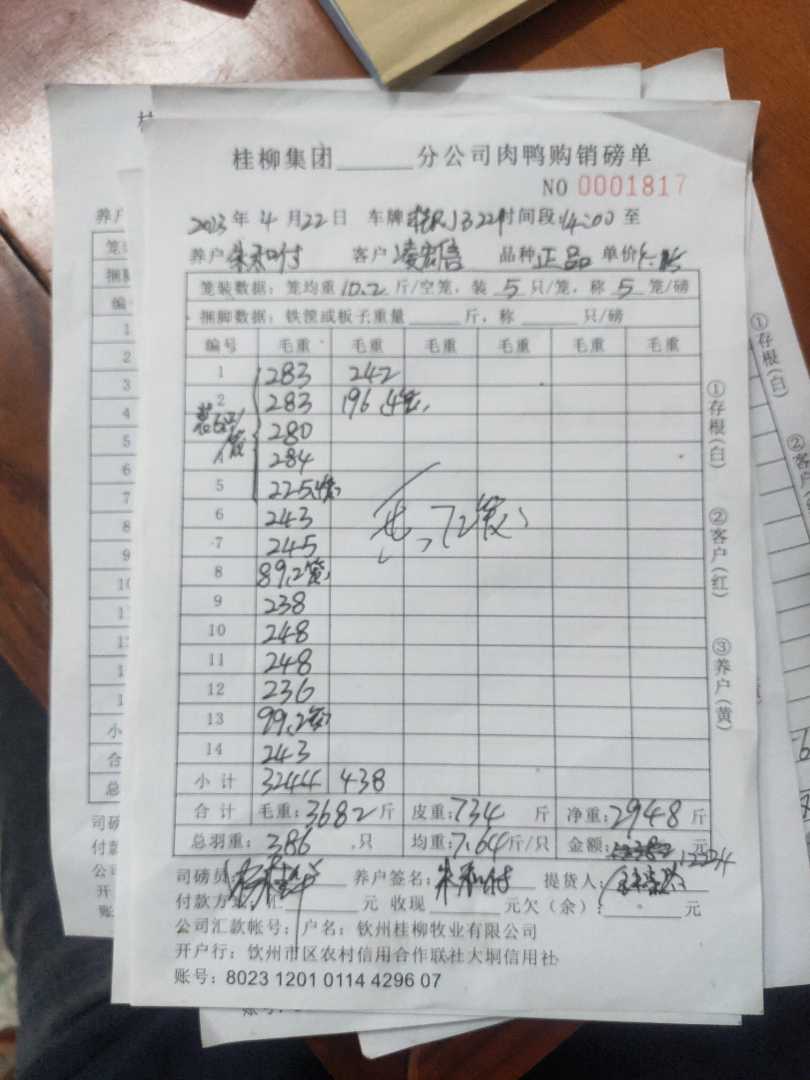 桂柳集团______分公司肉鸭购销磅单
NO 0001817
2023年4月22日 车牌 时间段14:00至
养户朱和付 客户凌宏信 品种正品 单价
笼装数据：笼均重10.2斤/空笼，装5只/笼，称5笼/磅
捆脚数据：铁筐或板子重量______斤，称______只/磅
编号 毛重 毛重 毛重 毛重 毛重 毛重
1 283 242
2 283 196.4笼
280
284
5 225.4笼
6 243
7 245
8 89.2笼
9 238
10 248
11 248
12 236
13 99.2笼
14 243
共72笼
小计 3244 438
合计 毛重：3682斤 皮重：734斤 净重：2948斤
总羽重：386只 均重：7.64斤/只 金额： 元
12234
司磅员： 养户签名：朱和付 提货人：
付款方式：汇______元 收现______元欠（余）：______元
公司汇款帐号：户名：钦州桂柳牧业有限公司
开户行：钦州市区农村信用合作联社大垌信用社
账号：8023 1201 0114 4296 07
①存根(白)
②客户(红)
③养户(黄)
①存根(白)
②客户
养户
笼
捆
编
1
2
3
4
5
6
7
8
9
小
合
总
司磅
付款
公司
开
账